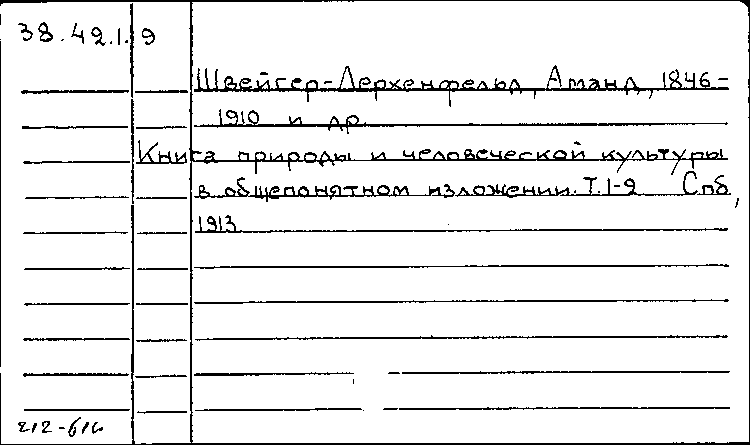 38.42.1.9
Швейгер-Лерхенфельд, Аманд, 1846-
1910 и др.
Книга природы и человеческой культуры
в общепонятном изложении. Т.1-2 Спб,
1913
212-61б